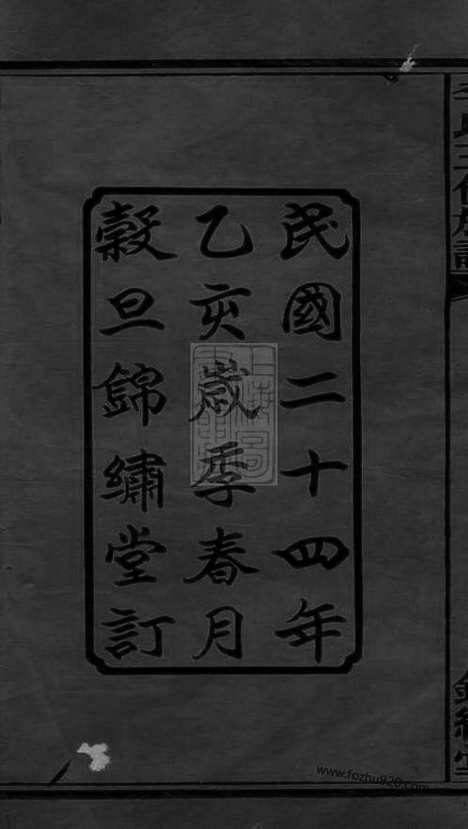 民國二十四年
乙亥歲季春月
穀旦錦繡堂訂
www.fozhu920.com